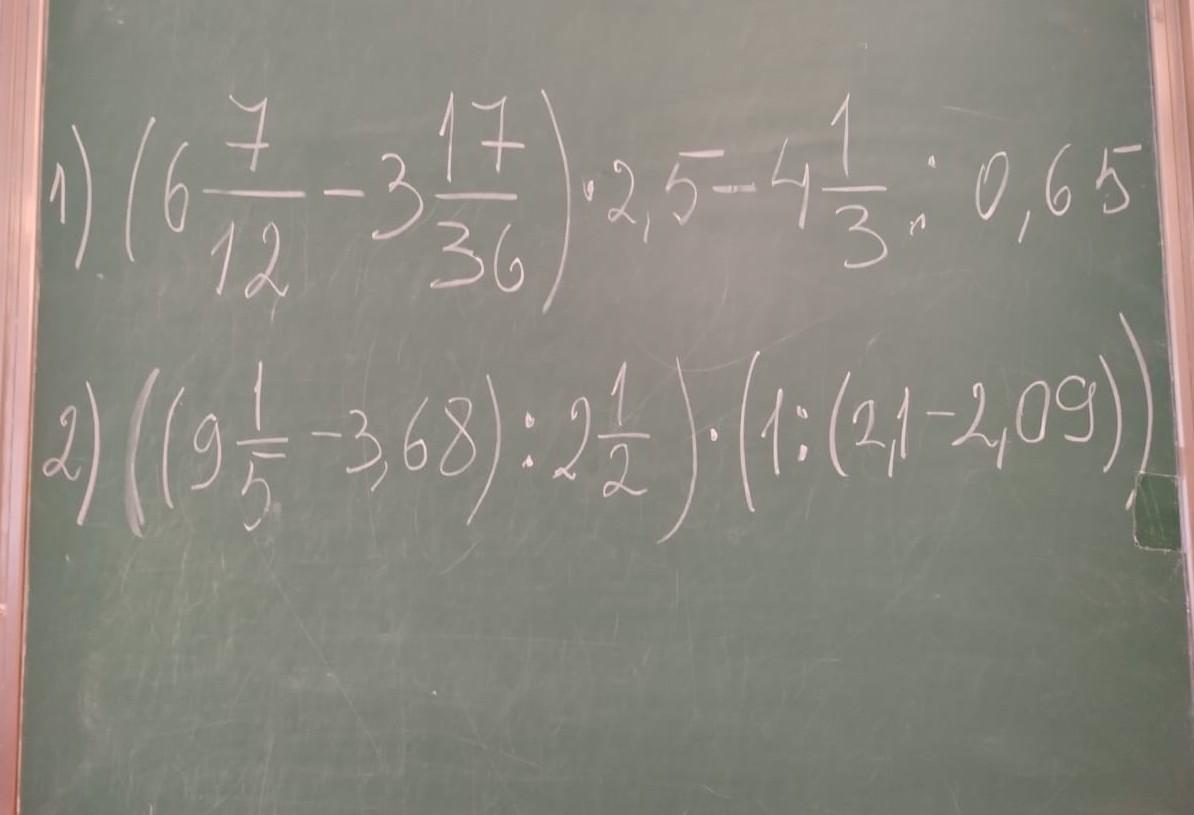 1) (6 7/12 - 3 17/36) · 2,5 - 4 1/3 : 0,65
2) ((9 1/5 - 3,68) : 2 1/2) · (1 : (2,1 - 2,09))